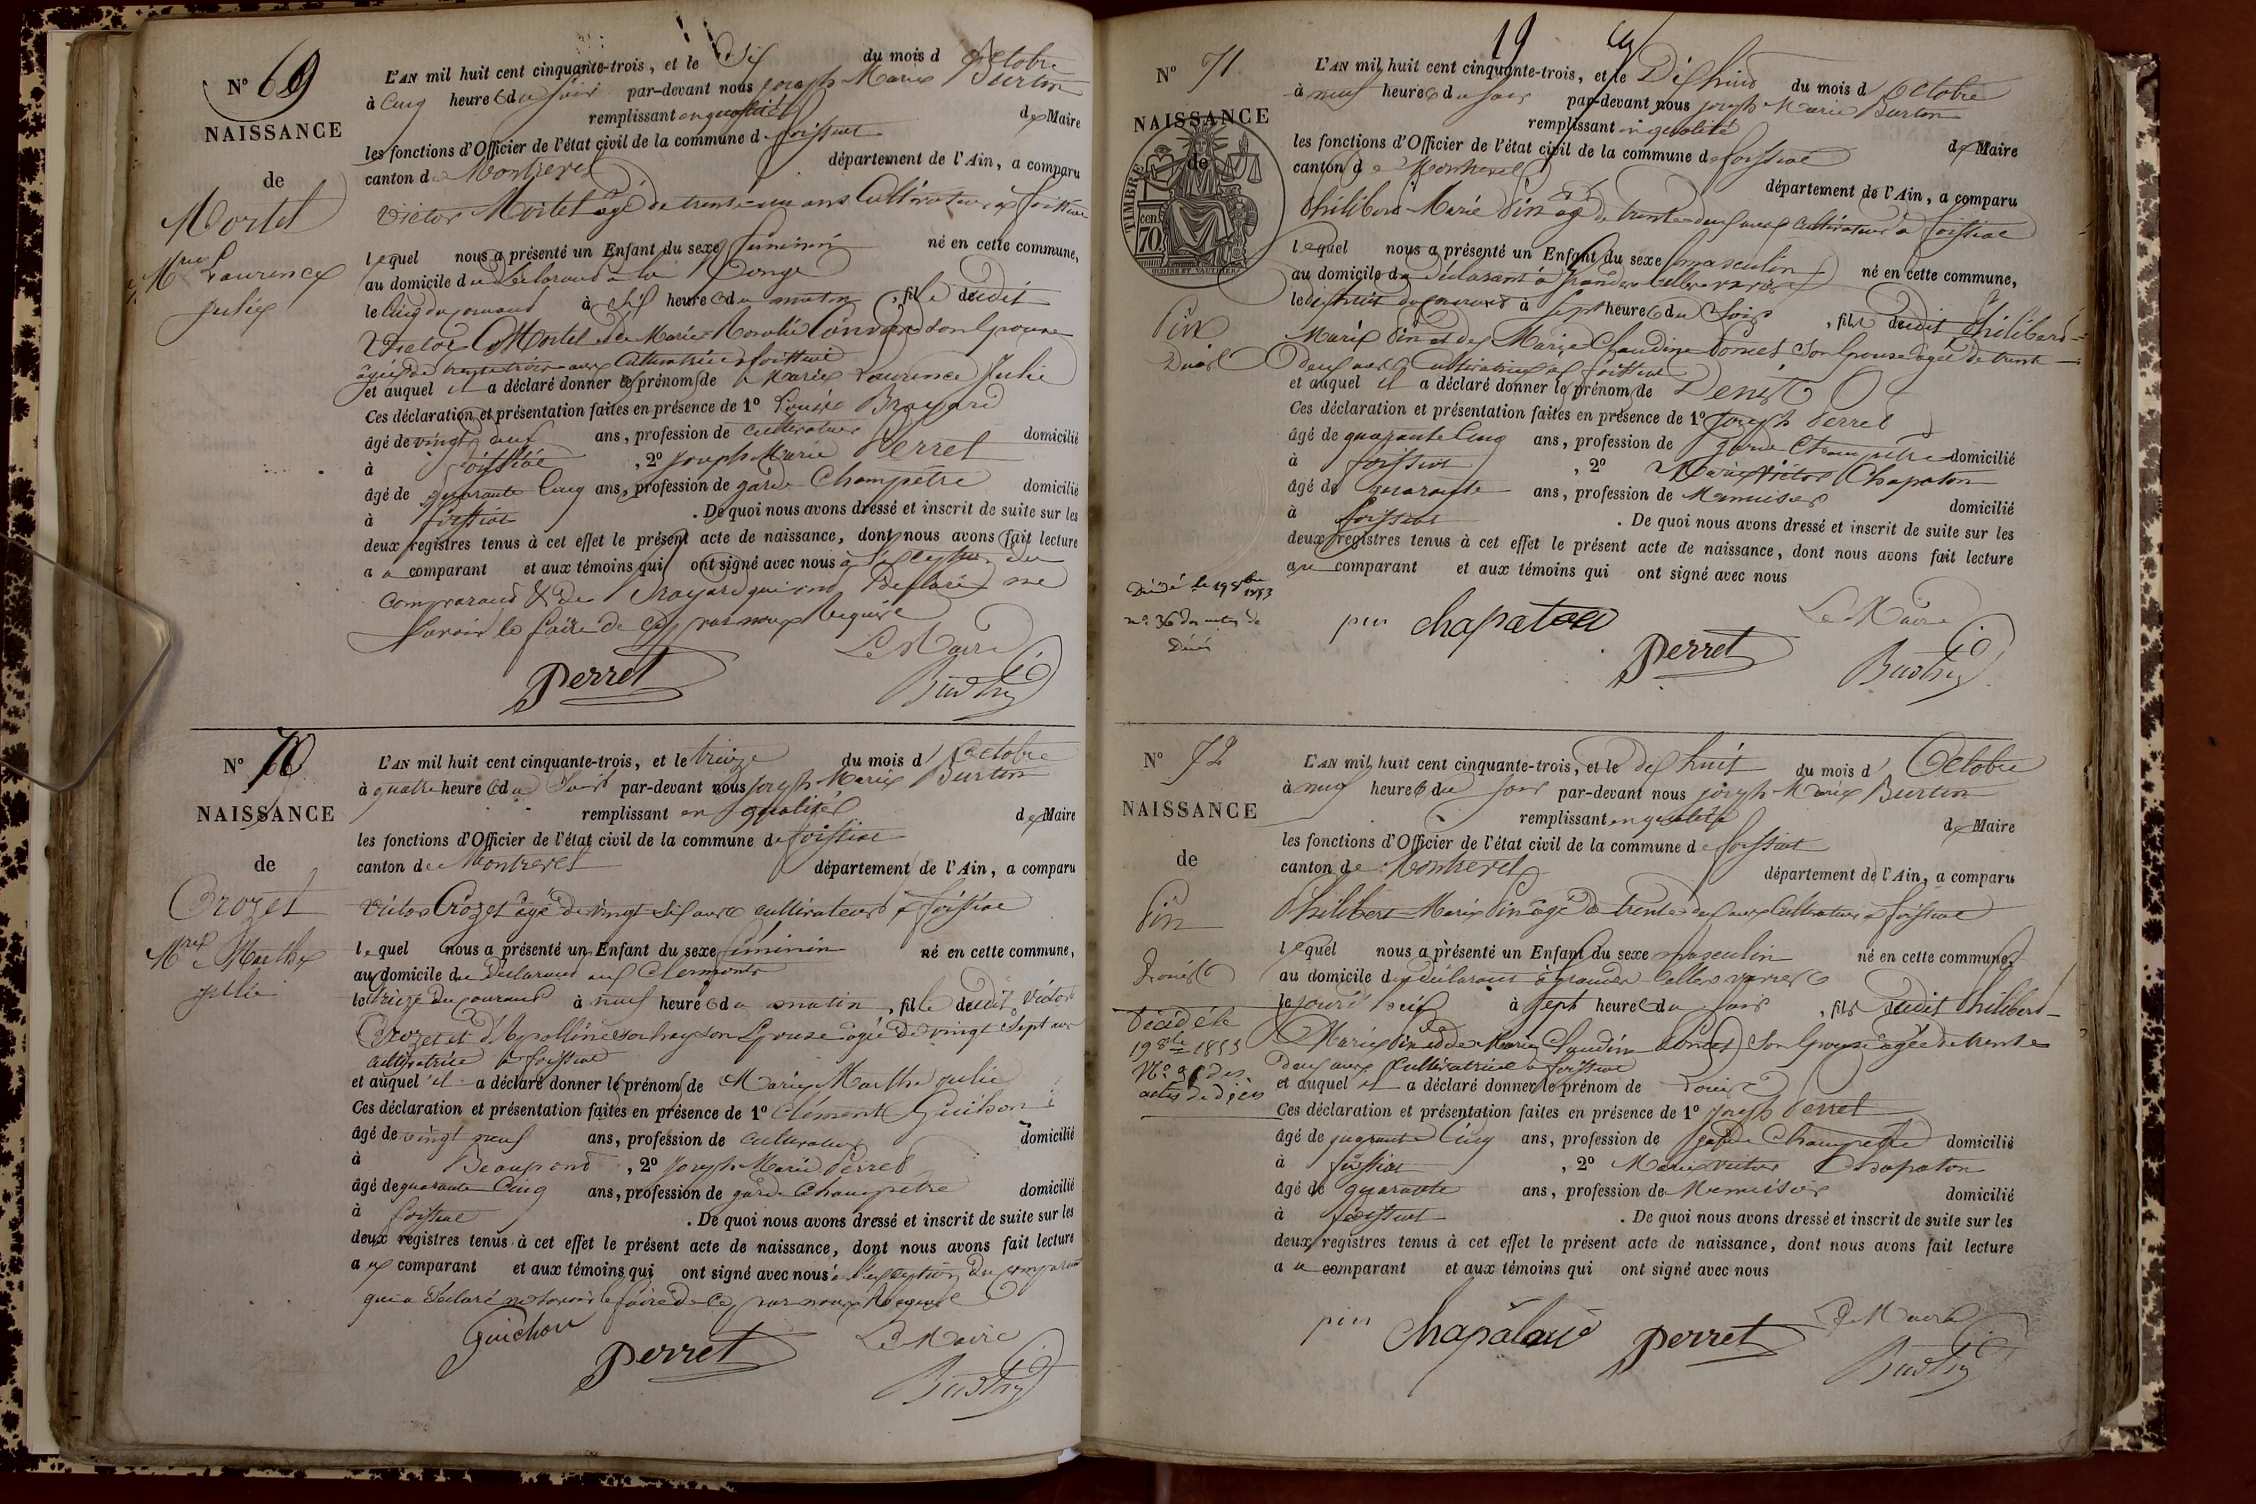 N° 69
NAISSANCE
de
Mortel
Mrie Laurence
Julie
L'AN mil huit cent cinquante-trois, et le Six du mois d'Octobre
à Cinq heures du soir par-devant nous Joseph Marie Burtin
remplissant en qualité de Maire
les fonctions d'Officier de l'état civil de la commune de foissiat
canton de Montrevel département de l'Ain, a comparu
Victor Mortel agé de trente un ans Cultivateur à foissiat
lequel nous a présenté un Enfant du sexe féminin né en cette commune,
au domicile du déclarant à la
le Cinq du courant à Six heures du matin, fille dudit
Victor Mortel et de Marie son épouse
agée de trente trois ans Cultivatrice à foissiat
et auquel il a déclaré donner les prénoms de Marie Laurence Julie
Ces déclaration et présentation faites en présence de 1° Brayard
âgé de vingt neuf ans, profession de cultivateur domicilié
à foissiat, 2° Joseph Marie Perret
âgé de quarante Cinq ans, profession de garde Champêtre domicilié
à foissiat. De quoi nous avons dressé et inscrit de suite sur les
deux registres tenus à cet effet le présent acte de naissance, dont nous avons fait lecture
au comparant et aux témoins qui ont signé avec nous à l'exception du
comparant & de Brayard qui ont déclaré ne
savoir le faire de ce par nous Requis
Le Maire
Perret
Burtin
N° 70
NAISSANCE
de
Crozet
Mrie Marthe
julie
L'AN mil huit cent cinquante-trois, et le treize du mois d'Octobre
à quatre heures du Soir par-devant nous Joseph Marie Burtin
remplissant en qualité de Maire
les fonctions d'Officier de l'état civil de la commune de foissiat
canton de Montrevel département de l'Ain, a comparu
Victor Crozet agé de vingt Six ans cultivateur à foissiat
lequel nous a présenté un Enfant du sexe féminin né en cette commune,
au domicile du déclarant aux Clermonts
le treize du courant à neuf heures du matin, fille dudit Victor
Crozet et d'Apolline son Epouse agée de vingt Sept ans
cultivatrice à foissiat
et auquel il a déclaré donner les prénoms de Marie Marthe julie
Ces déclaration et présentation faites en présence de 1° Clément Guichon
âgé de vingt neuf ans, profession de cultivateur domicilié
à Beaupont, 2° Joseph Marie Perret
âgé de quarante Cinq ans, profession de garde Champêtre domicilié
à foissiat. De quoi nous avons dressé et inscrit de suite sur les
deux registres tenus à cet effet le présent acte de naissance, dont nous avons fait lecture
au comparant et aux témoins qui ont signé avec nous à l'exception du comparant
qui a déclaré ne savoir le faire de ce par nous Requis
Guichon
Perret
Le Maire
Burtin
19
N° 71
NAISSANCE
de
TIMBRE
cen.
70
Pin
Denis
Décédé le 19 8bre
1853
n° 36 des actes de
Décès
L'AN mil huit cent cinquante-trois, et le Dix huit du mois d'Octobre
à neuf heures du soir par-devant nous Joseph Marie Burtin
remplissant en qualité de Maire
les fonctions d'Officier de l'état civil de la commune de foissiat
canton de Montrevel département de l'Ain, a comparu
Philibert Marie Pin agé de trente deux ans cultivateur à foissiat
lequel nous a présenté un Enfant du sexe masculin né en cette commune,
au domicile du déclarant à
le dix huit du courant à Sept heures du Soir, fils dudit Philibert
Marie Pin et de Marie Claudine son épouse agée de trente
deux ans Cultivatrice à foissiat
et auquel il a déclaré donner le prénom de Denis
Ces déclaration et présentation faites en présence de 1° Joseph Perret
âgé de quarante Cinq ans, profession de garde Champêtre domicilié
à foissiat, 2° Marie Victor Chapaton
âgé de quarante ans, profession de Menuisier domicilié
à foissiat. De quoi nous avons dressé et inscrit de suite sur les
deux registres tenus à cet effet le présent acte de naissance, dont nous avons fait lecture
au comparant et aux témoins qui ont signé avec nous
Le Maire
pin chapaton
Perret
Burtin
N° 72
NAISSANCE
de
Pin
Décédé le
19 8bre 1853
N° des
actes de décès
L'AN mil huit cent cinquante-trois, et le dix huit du mois d'Octobre
à neuf heures du soir par-devant nous Joseph Marie Burtin
remplissant en qualité de Maire
les fonctions d'Officier de l'état civil de la commune de foissiat
canton de Montrevel département de l'Ain, a comparu
Philibert Marie Pin agé de trente deux ans Cultivateur à foissiat
lequel nous a présenté un Enfant du sexe masculin né en cette commune,
au domicile du déclarant à
le jour à Sept heures du soir, fils dudit Philibert
Marie Pin et de Marie Claudine son épouse agée de trente
deux ans Cultivatrice à foissiat
et auquel il a déclaré donner le prénom de
Ces déclaration et présentation faites en présence de 1° Joseph Perret
âgé de quarante Cinq ans, profession de garde Champêtre domicilié
à foissiat, 2° Marie Victor Chapaton
âgé de quarante ans, profession de Menuisier domicilié
à foissiat. De quoi nous avons dressé et inscrit de suite sur les
deux registres tenus à cet effet le présent acte de naissance, dont nous avons fait lecture
au comparant et aux témoins qui ont signé avec nous
Le Maire
pin Chapaton Perret
Burtin